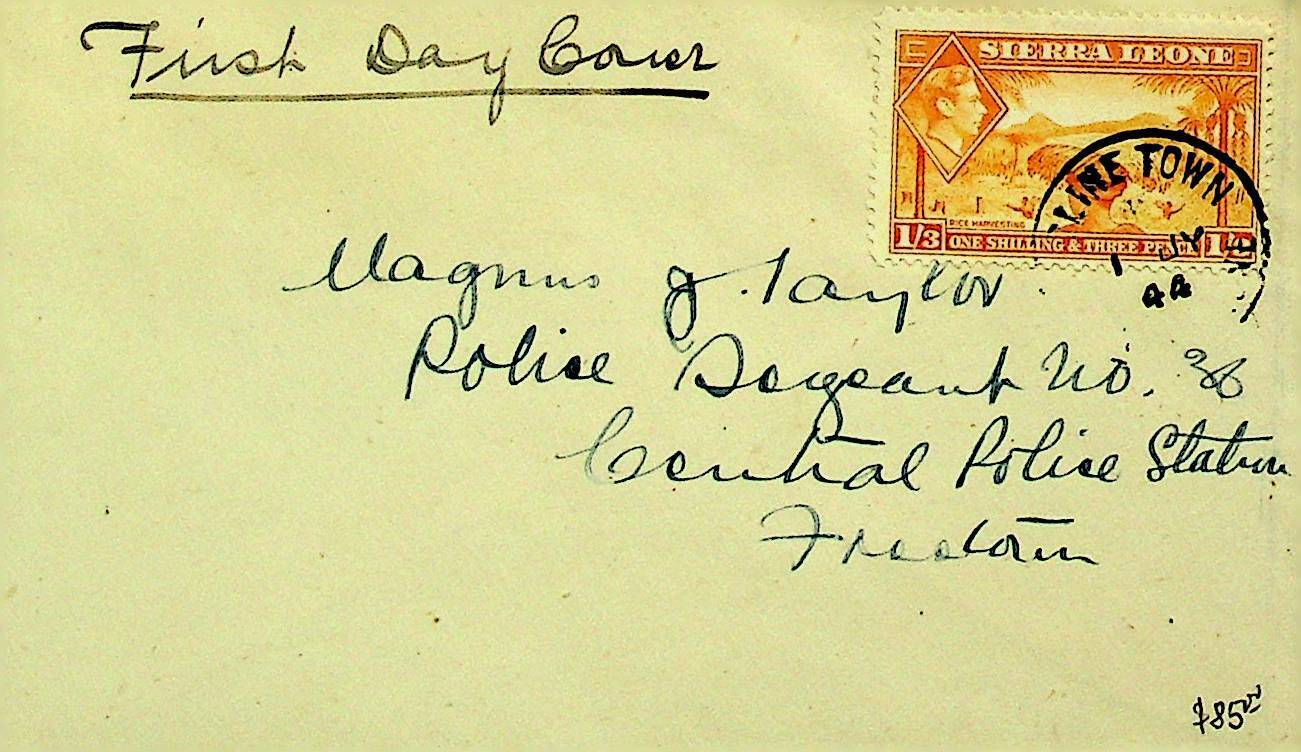 First Day Cover
SIERRA LEONE
RICE HARVESTING
1/3 ONE SHILLING & THREE PENCE 1/3
CLINE TOWN
1 JY
44
Magnus J. Taylor
Police Sergeant No. 36
Central Police Station
Freetown
$85